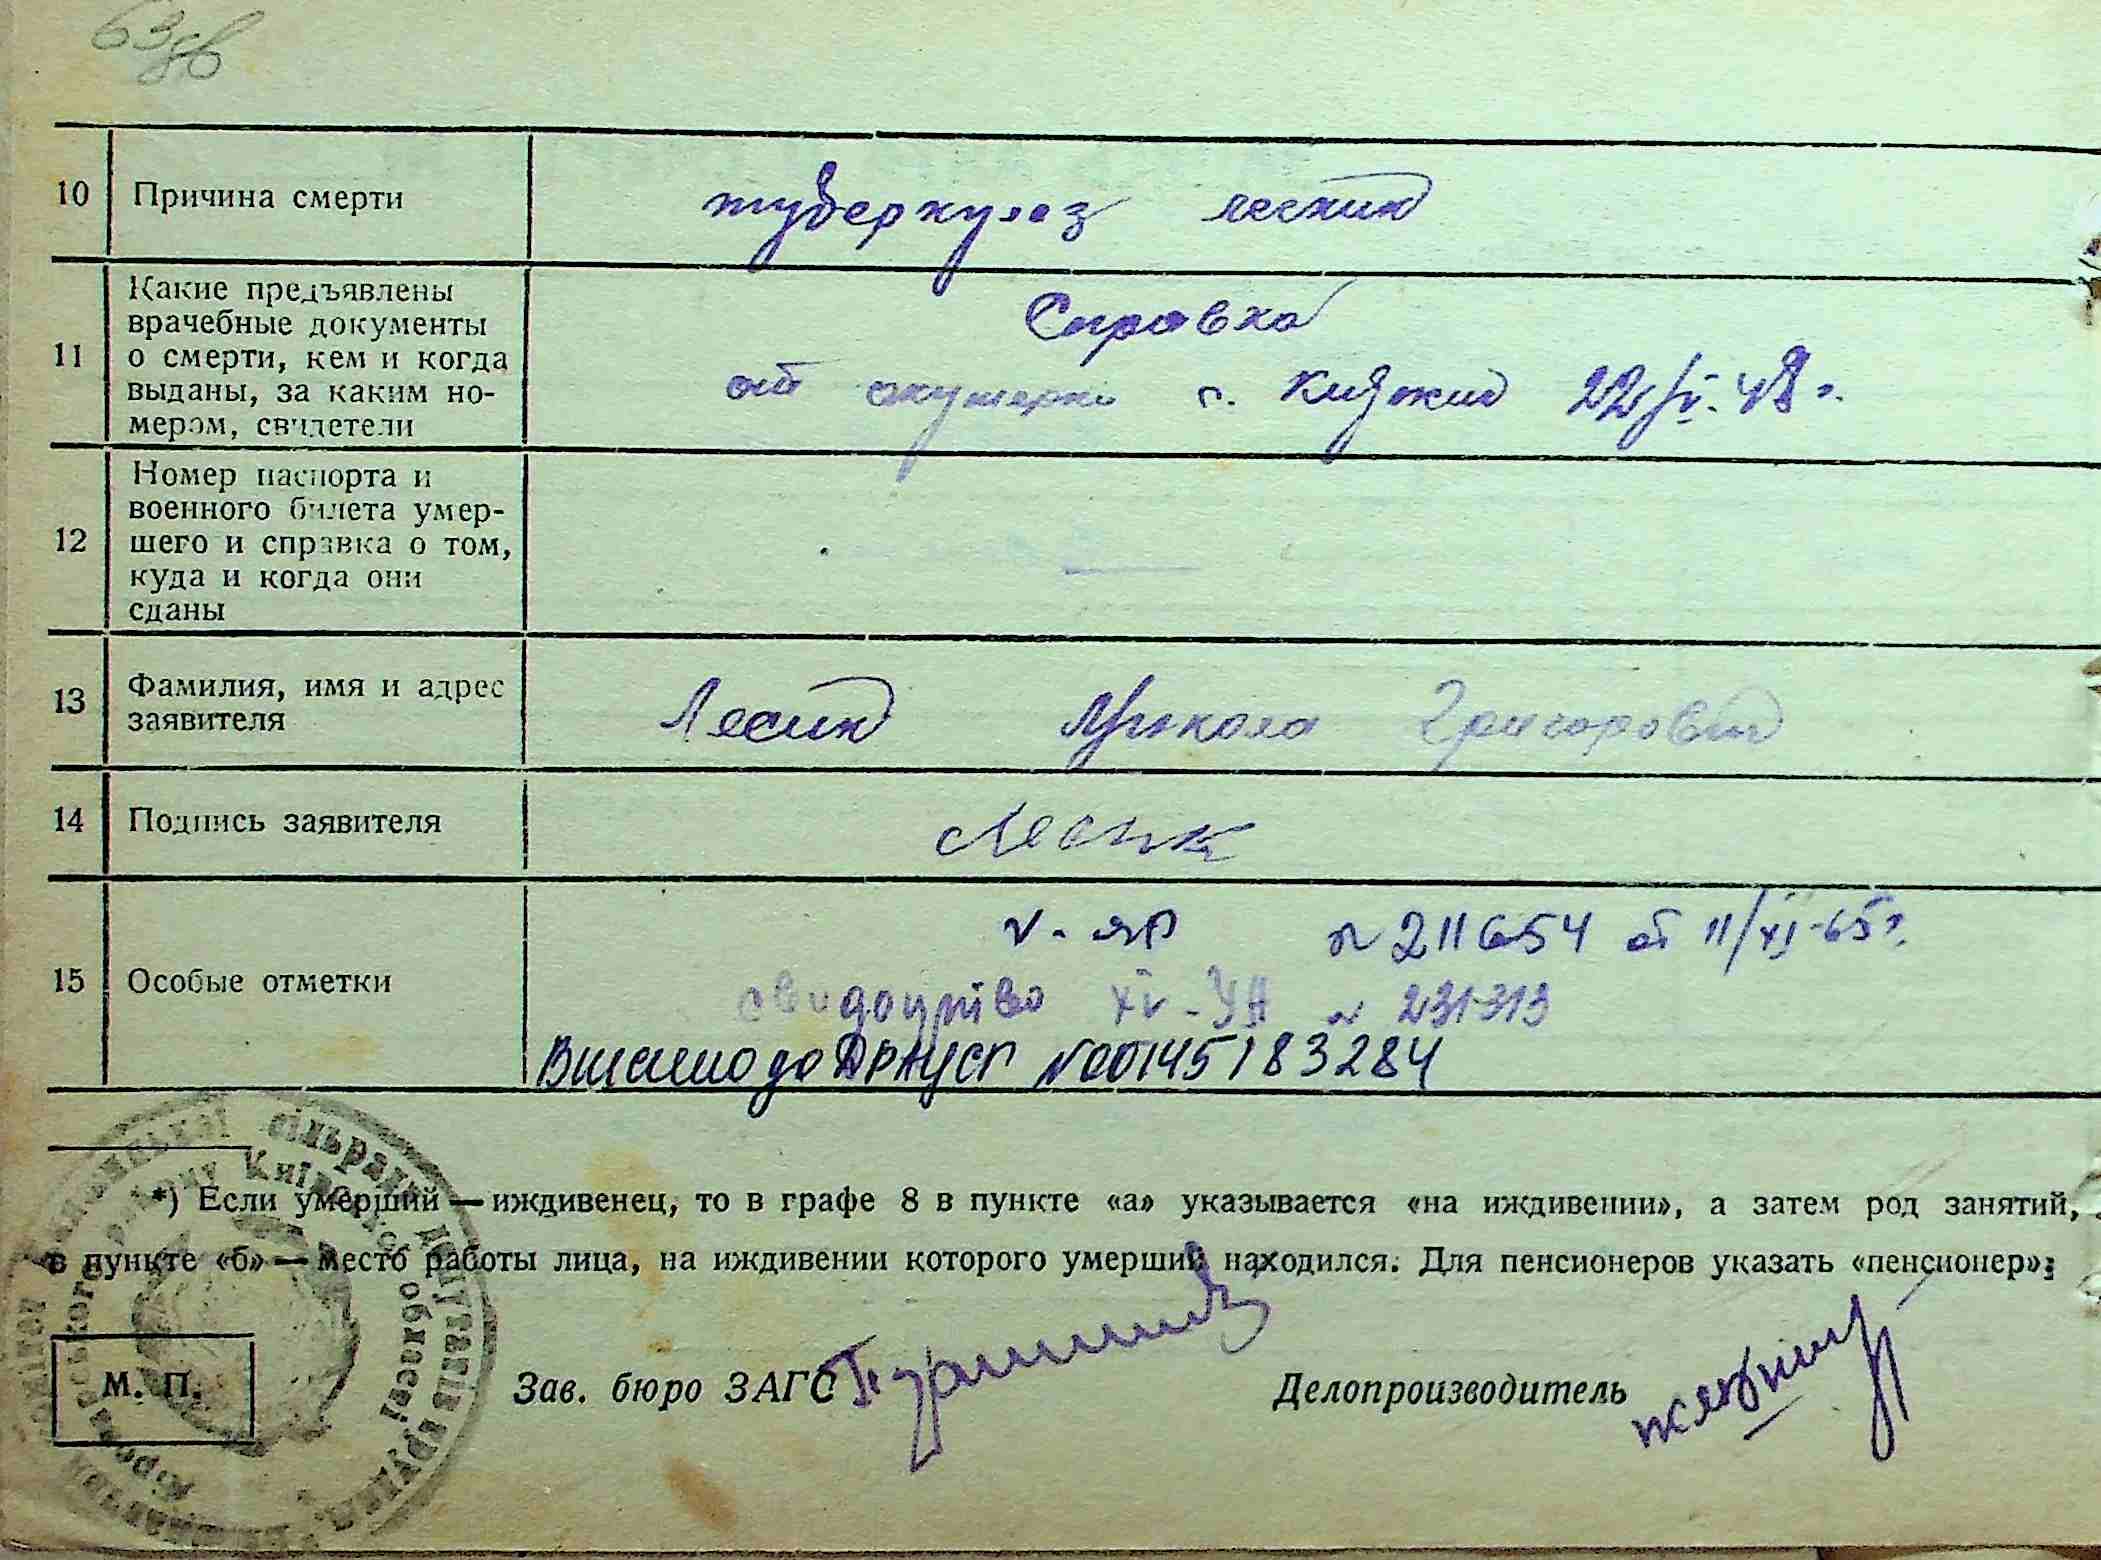 10 Причина смерти туберкулез легких
11 Какие предъявлены
врачебные документы
о смерти, кем и когда
выданы, за каким но-
мером, свидетели
Справка
от акушерки с. Княжих 22/IV.48 г.
12 Номер паспорта и
военного билета умер-
шего и справка о том,
куда и когда они
сданы
—
13 Фамилия, имя и адрес
заявителя
Лесик Микола Григорович
14 Подпись заявителя Лесик
15 Особые отметки
V-ЯР № 211654 от 11/XI-65 г.
свидоцтво XIV-УН № 231313
Внесено до ДРАЦСГ №00145183284
сільради депутатів труд.
області
*) Если умерший — иждивенец, то в графе 8 в пункте «а» указывается «на иждивении», а затем род занятий,
в пункте «б» — место работы лица, на иждивении которого умерший находился. Для пенсионеров указать «пенсионер»;
М. П. Зав. бюро ЗАГС Делопроизводитель